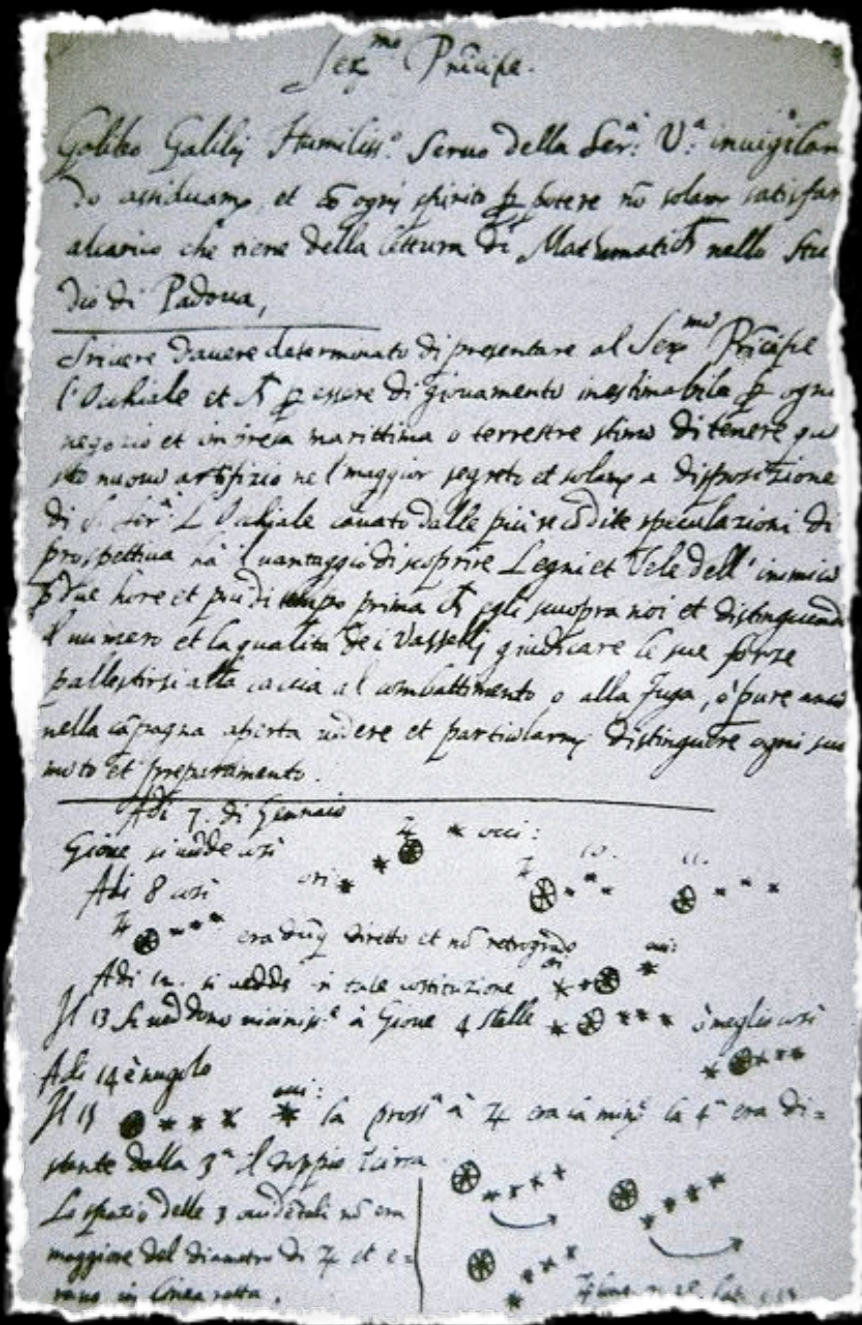 Ser.mo Prīcipe.
Galileo Galilej Humiliss.º Servo della Ser.ª V.ª invigilan
do assiduam.e, et cō ogni spirito p potere nō solam.e satisfar
alcarico che tiene della lettura di Mathematich nello Stu
dio di Padova,
Scrivere davere determinato di presentare al Ser.mo Prīcipe
l'Occhiale et p essere di giovamento inestimabile p ogni
negozio et impresa marittima o terrestre stima di tenere que
sto nuovo artifizio nel maggior segreto et solam.e a disposizione
di S. Ser.ª L'Occhiale cavato dalle più recōdite speculazioni di
prospettiva ha il vantaggio di scoprire Legni et Vele dell'inimico
p due hore et più di tempo prima ch egli scuopra noi et distinguendo
il numero et la qualità dei Vasselli giudicare le sue forze
pallestirsi alla caccia al combattimento o alla fuga, ò pure anco
nella cāpagna aperta vedere et particolarm.e distinguere ogni suo
moto et preparamento.
Adi 7. di Gennaio
Giove si vede così ♃ * * occi:
Adi 8 così ori * ♃ 10. * * * 11. * * *
♃ * * * era dūq diretto et nō retrogrado
Adi 12. si vedde in tale costituzione ori * * occi: *
Il 13 si veddono viciniss.e à Giove 4 stelle * * * * ò meglio così
* * * *
Adi 14 è nugolo
Il 15 * * * * occi: la pross.ª à ♃ era la min.e la 4ª era di=
stante dalla 3ª il doppio circa
Lo spazio delle 3 occidētali nō era
maggiore del diametro di ♃ et e=
rano in linea retta.